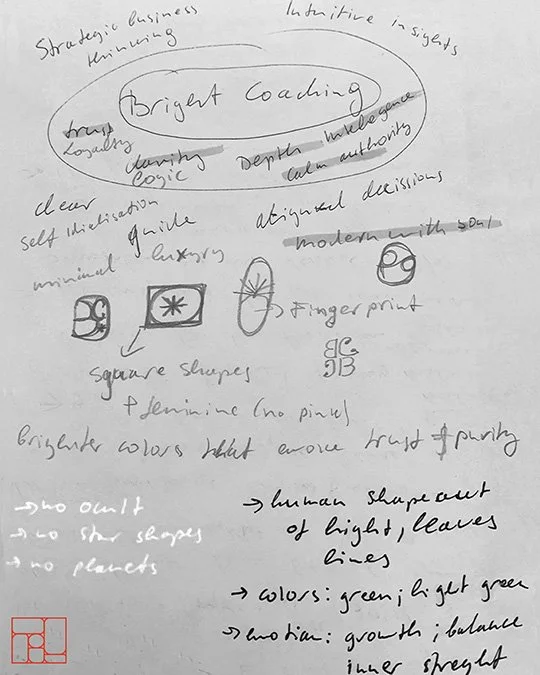 Strategic Business
thinking
Intuitive insights
Bright Coaching
trust
Loyalty
clarity
Logic
Depth Intelegence
calm authority
clear
self idialisation
guide
aligned decissions
modern with soul
minimal
luxury
Fingerprint
BC
square shapes
+ feminine (no pink)
Brighter colors that evoke trust & purity
→ no ocult
→ no star shapes
→ no planets
→ human shape out
of light, leaves
lines
→ colors: green; light green
→ emotion: growth; balance
inner streght